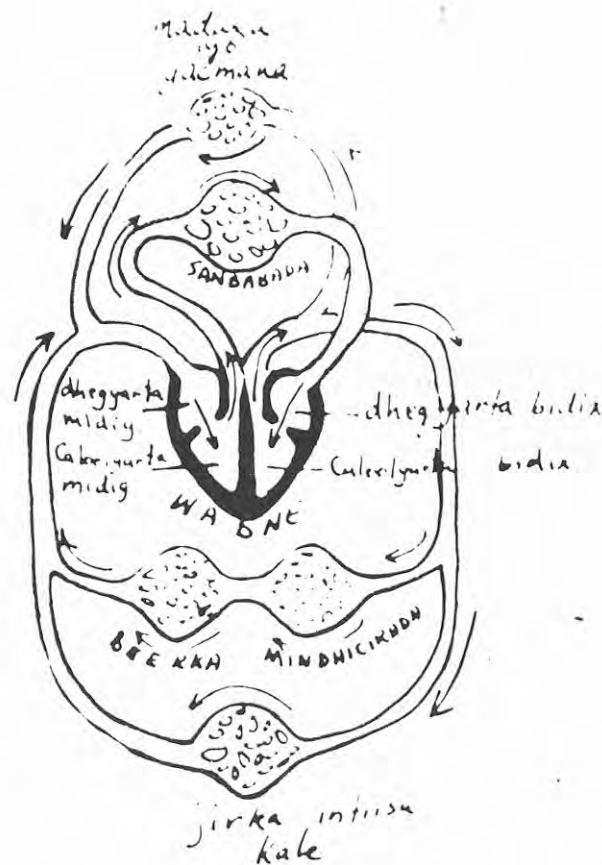 Madaxa
iyo
gacmaha
SANBABADA
dhegyarta
midig
dhegyarta bidix
Caloolyarta
midig
Caloolyarta bidix
WADNE
BEERKA
MINDHICIKADA
jirka intiisa
kale